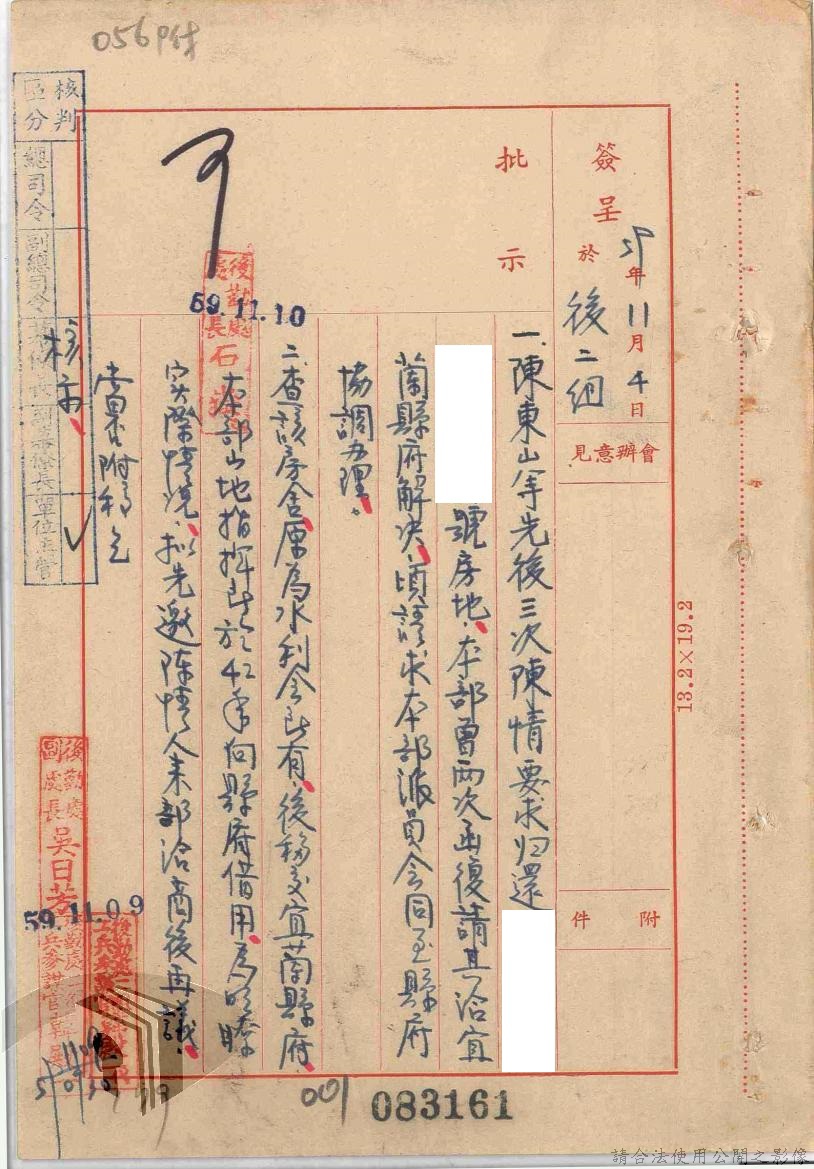 056附
簽呈 於
59年11月4日
後二組
會辦意見
附件
批示
可
59.11.10
一、陳東山等先後三次陳情要求归還
號房地、本部曾两次函復請其洽宜
蘭縣府解決、頃請求本部派員会同至縣府
協調办理、
二、查該房舍原為水利会所有、後移交宜蘭縣府、
本部山地指揮所於42年向縣府借用、為明瞭
实際情况、拟先邀陈情人来部洽商後再議、
當否附稿乞
核示、
核判區分
總司令
副總司令
參謀長
副參謀長
單位主管
✓
後勤處處長石
後勤處副處長吳日芳
59.11.09
13.2×19.2
001
083161
請合法使用公開之影像